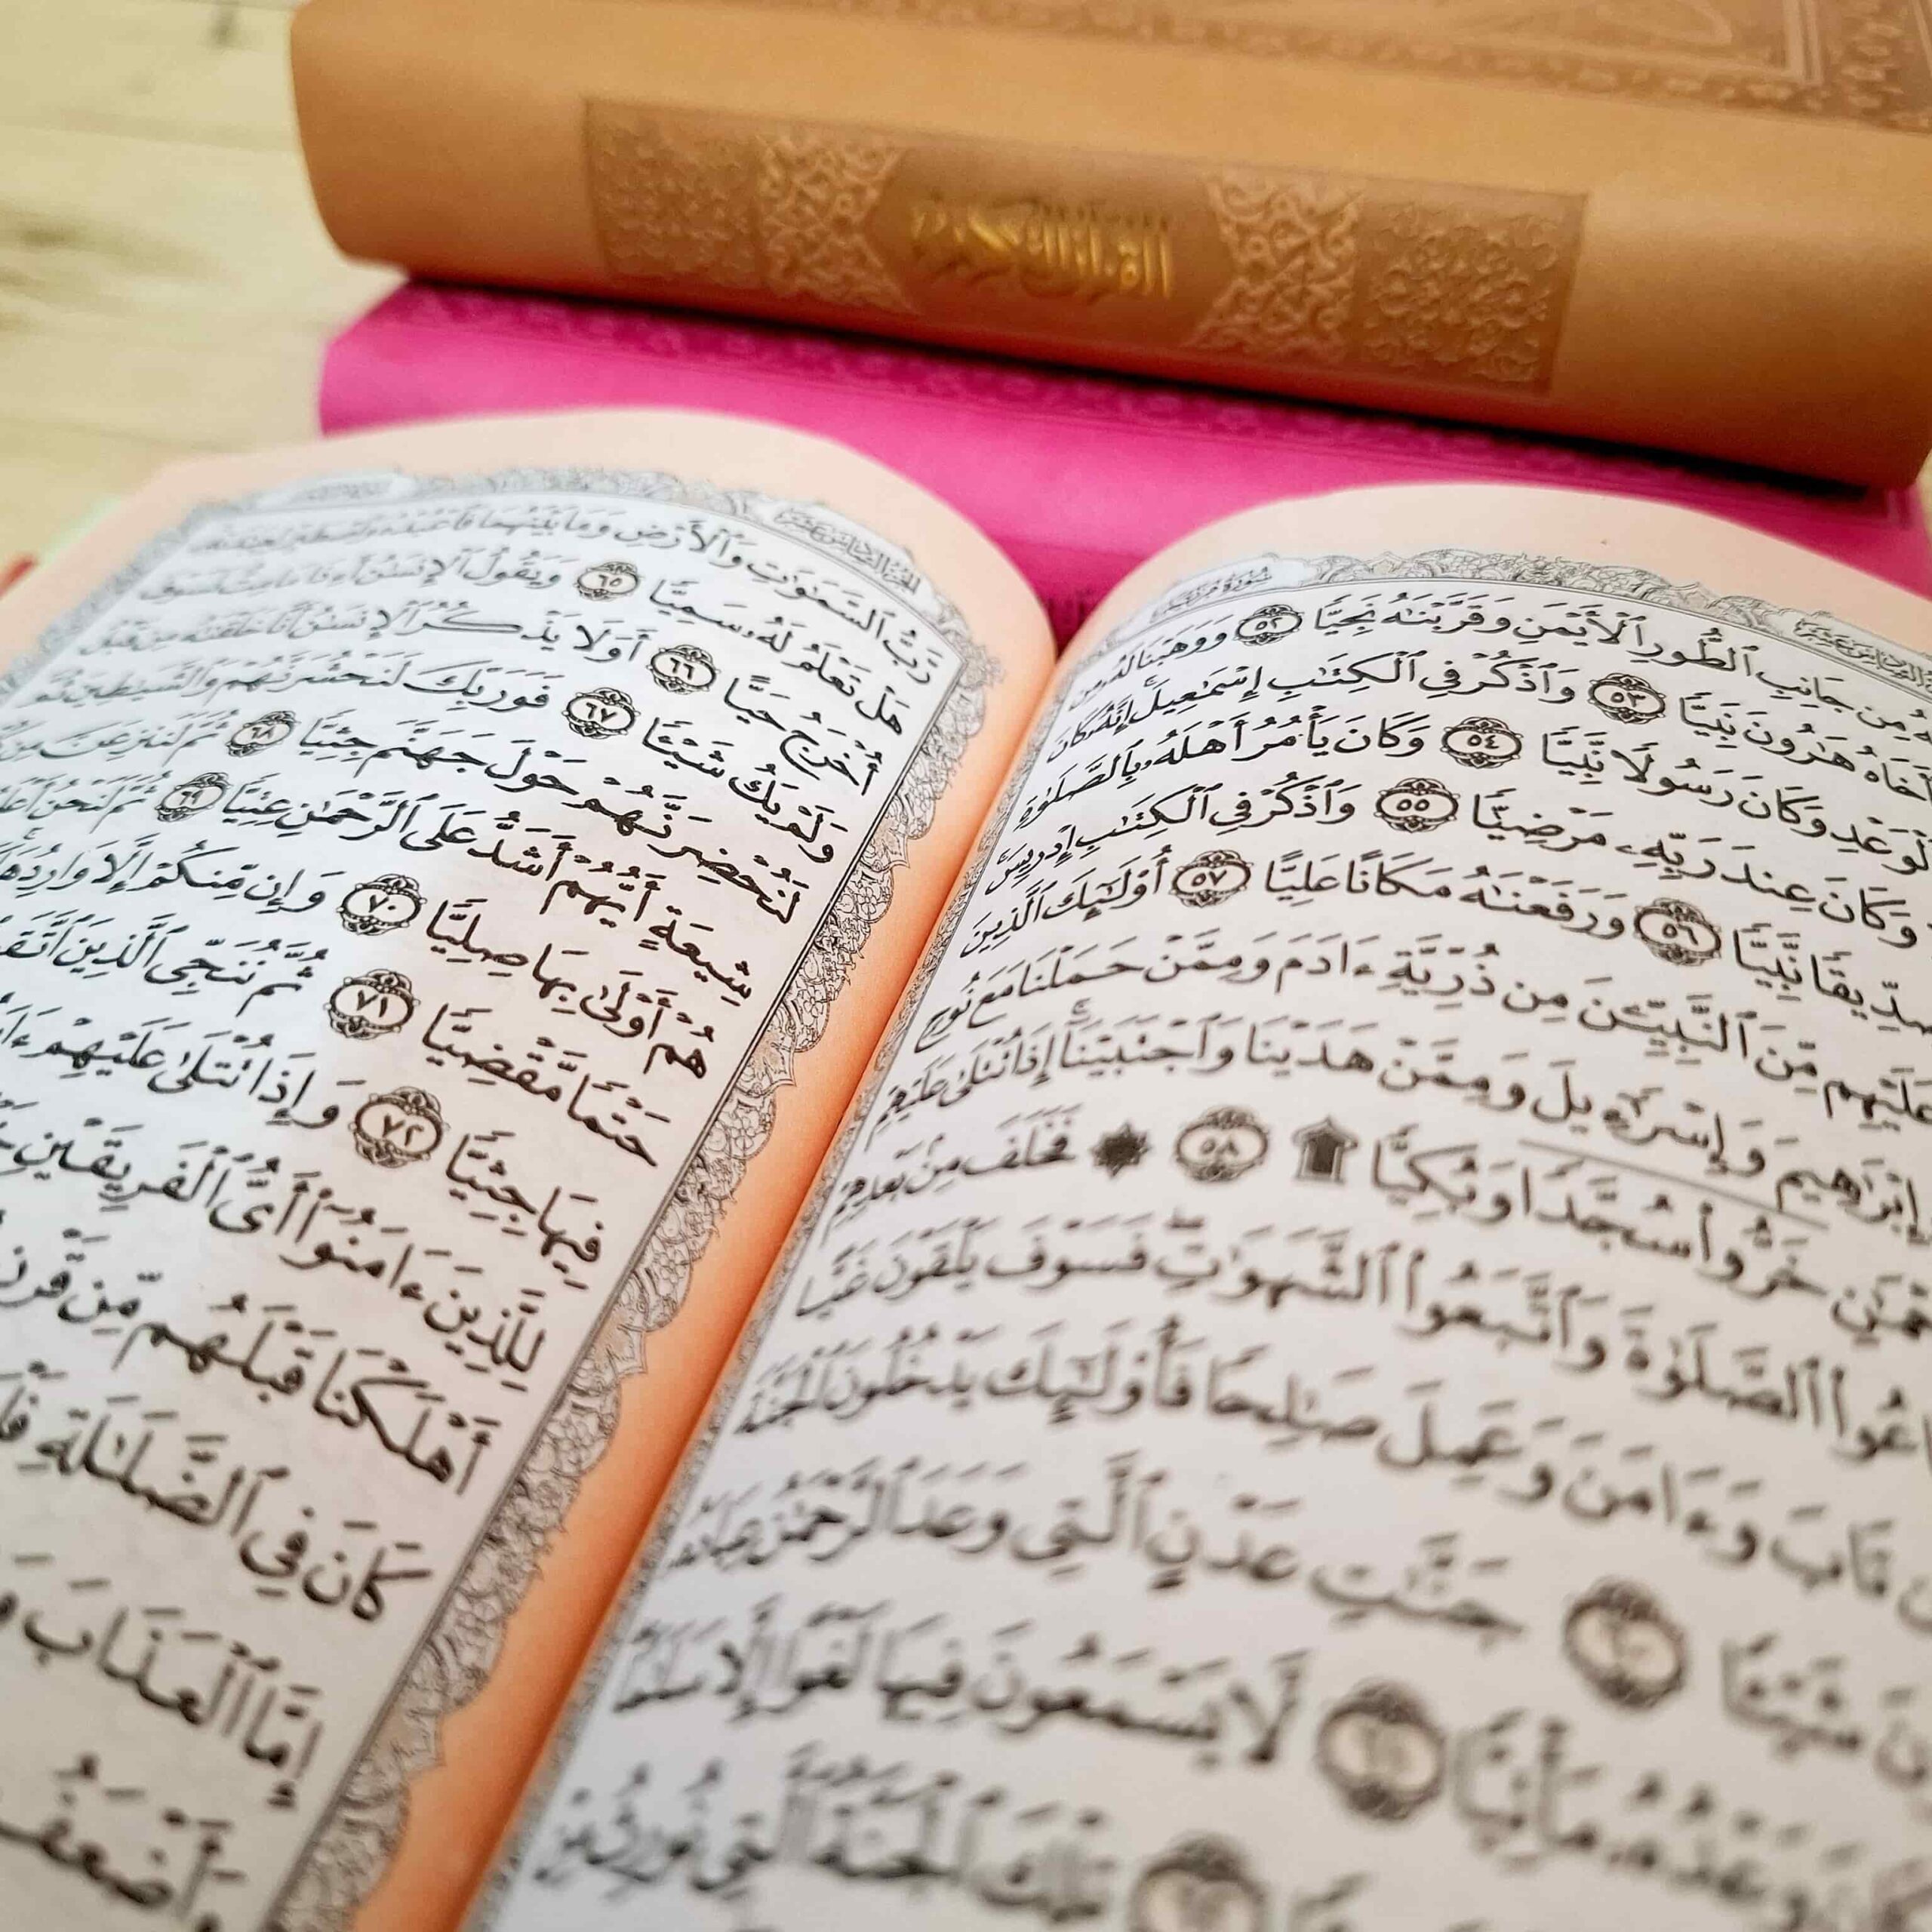 القرآن الكريم
سورة مريم
مِن جَانِبِ ٱلطُّورِ ٱلْأَيْمَنِ وَقَرَّبْنَٰهُ نَجِيًّا ٥٢ وَوَهَبْنَا لَهُۥ مِن
أَخَاهُ هَٰرُونَ نَبِيًّا ٥٣ وَٱذْكُرْ فِى ٱلْكِتَٰبِ إِسْمَٰعِيلَ ۚ إِنَّهُۥ كَانَ
ٱلْوَعْدِ وَكَانَ رَسُولًا نَّبِيًّا ٥٤ وَكَانَ يَأْمُرُ أَهْلَهُۥ بِٱلصَّلَوٰةِ
وَكَانَ عِندَ رَبِّهِۦ مَرْضِيًّا ٥٥ وَٱذْكُرْ فِى ٱلْكِتَٰبِ إِدْرِيسَ ۚ
صِدِّيقًا نَّبِيًّا ٥٦ وَرَفَعْنَٰهُ مَكَانًا عَلِيًّا ٥٧ أُو۟لَٰٓئِكَ ٱلَّذِينَ
عَلَيْهِم مِّنَ ٱلنَّبِيِّۦنَ مِن ذُرِّيَّةِ ءَادَمَ وَمِمَّنْ حَمَلْنَا مَعَ نُوحٍ
إِبْرَٰهِيمَ وَإِسْرَٰٓءِيلَ وَمِمَّنْ هَدَيْنَا وَٱجْتَبَيْنَآ ۚ إِذَا تُتْلَىٰ عَلَيْهِمْ
خَرُّوا۟ سُجَّدًا وَبُكِيًّا ۩ ٥٨ ۞ فَخَلَفَ مِنۢ بَعْدِهِمْ
ٱلصَّلَوٰةَ وَٱتَّبَعُوا۟ ٱلشَّهَوَٰتِ ۖ فَسَوْفَ يَلْقَوْنَ غَيًّا
تَابَ وَءَامَنَ وَعَمِلَ صَٰلِحًا فَأُو۟لَٰٓئِكَ يَدْخُلُونَ ٱلْجَنَّةَ
شَيْـًٔا ٦٠ جَنَّٰتِ عَدْنٍ ٱلَّتِى وَعَدَ ٱلرَّحْمَٰنُ عِبَادَهُۥ
وَعْدُهُۥ مَأْتِيًّا ٦١ لَّا يَسْمَعُونَ فِيهَا لَغْوًا إِلَّا سَلَٰمًا
تِلْكَ ٱلْجَنَّةُ ٱلَّتِى نُورِثُ مِنْ
الجزء السادس عشر
رَّبُّ ٱلسَّمَٰوَٰتِ وَٱلْأَرْضِ وَمَا بَيْنَهُمَا فَٱعْبُدْهُ وَٱصْطَبِرْ لِعِبَٰدَتِهِۦ
هَلْ تَعْلَمُ لَهُۥ سَمِيًّا ٦٥ وَيَقُولُ ٱلْإِنسَٰنُ أَءِذَا مَا مِتُّ لَسَوْفَ
أُخْرَجُ حَيًّا ٦٦ أَوَلَا يَذْكُرُ ٱلْإِنسَٰنُ أَنَّا خَلَقْنَٰهُ مِن قَبْلُ
وَلَمْ يَكُ شَيْـًٔا ٦٧ فَوَرَبِّكَ لَنَحْشُرَنَّهُمْ وَٱلشَّيَٰطِينَ ثُمَّ
لَنُحْضِرَنَّهُمْ حَوْلَ جَهَنَّمَ جِثِيًّا ٦٨ ثُمَّ لَنَنزِعَنَّ مِن
شِيعَةٍ أَيُّهُمْ أَشَدُّ عَلَى ٱلرَّحْمَٰنِ عِتِيًّا ٦٩ ثُمَّ لَنَحْنُ
هُمْ أَوْلَىٰ بِهَا صِلِيًّا ٧٠ وَإِن مِّنكُمْ إِلَّا وَارِدُهَا
حَتْمًا مَّقْضِيًّا ٧١ ثُمَّ نُنَجِّى ٱلَّذِينَ
فِيهَا جِثِيًّا ٧٢ وَإِذَا تُتْلَىٰ عَلَيْهِمْ
لِلَّذِينَ ءَامَنُوٓا۟ أَىُّ ٱلْفَرِيقَيْنِ
أَهْلَكْنَا قَبْلَهُم مِّن قَرْنٍ
كَانَ فِى ٱلضَّلَٰلَةِ
إِمَّا ٱلْعَذَابَ
وَأَضْعَفُ